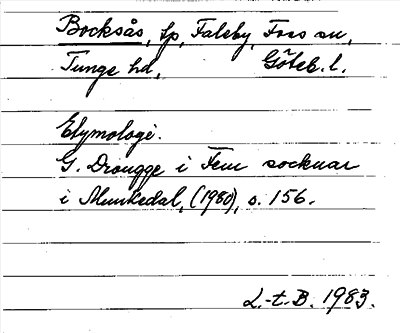 Bocksås, tp, Faleby, Foss sn,
Tunge hd, Göteb. l.
Etymologi.
G. Drougge i Fem socknar
i Munkedal, (1980), s. 156.
L.-t. B. 1983.